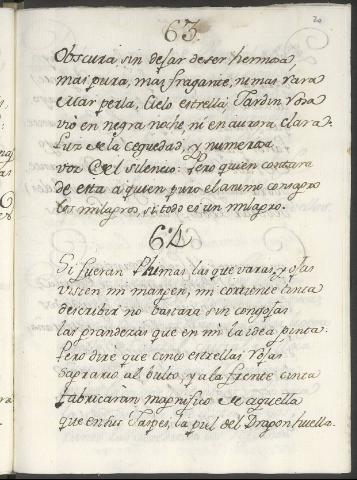 20
63.
Obscura, sin dejar de ser hermosa,
mas pura, mas fragante, ni mas rara
mar perla, Cielo estrella, Jardin rosa
vió en negra noche, ni en aurora clara.
Luz de la ceguedad, y numerosa
voz del silencio: Pero quien contara
de esta a quien puro el animo consagro
los milagros, si todo es un milagro.
64
Si fueran Plumas las que varas, y ojas
visten mi margen, mi corriente tinta
describir no bastara sin congojas
las grandezas que en mi la idea pinta:
Pero diré que cinco estrellas rojas
al bulto, y a la frente cinta
fabricaran magnifico de aquella
que en sus Jaspes, la piel del Dragon huella.